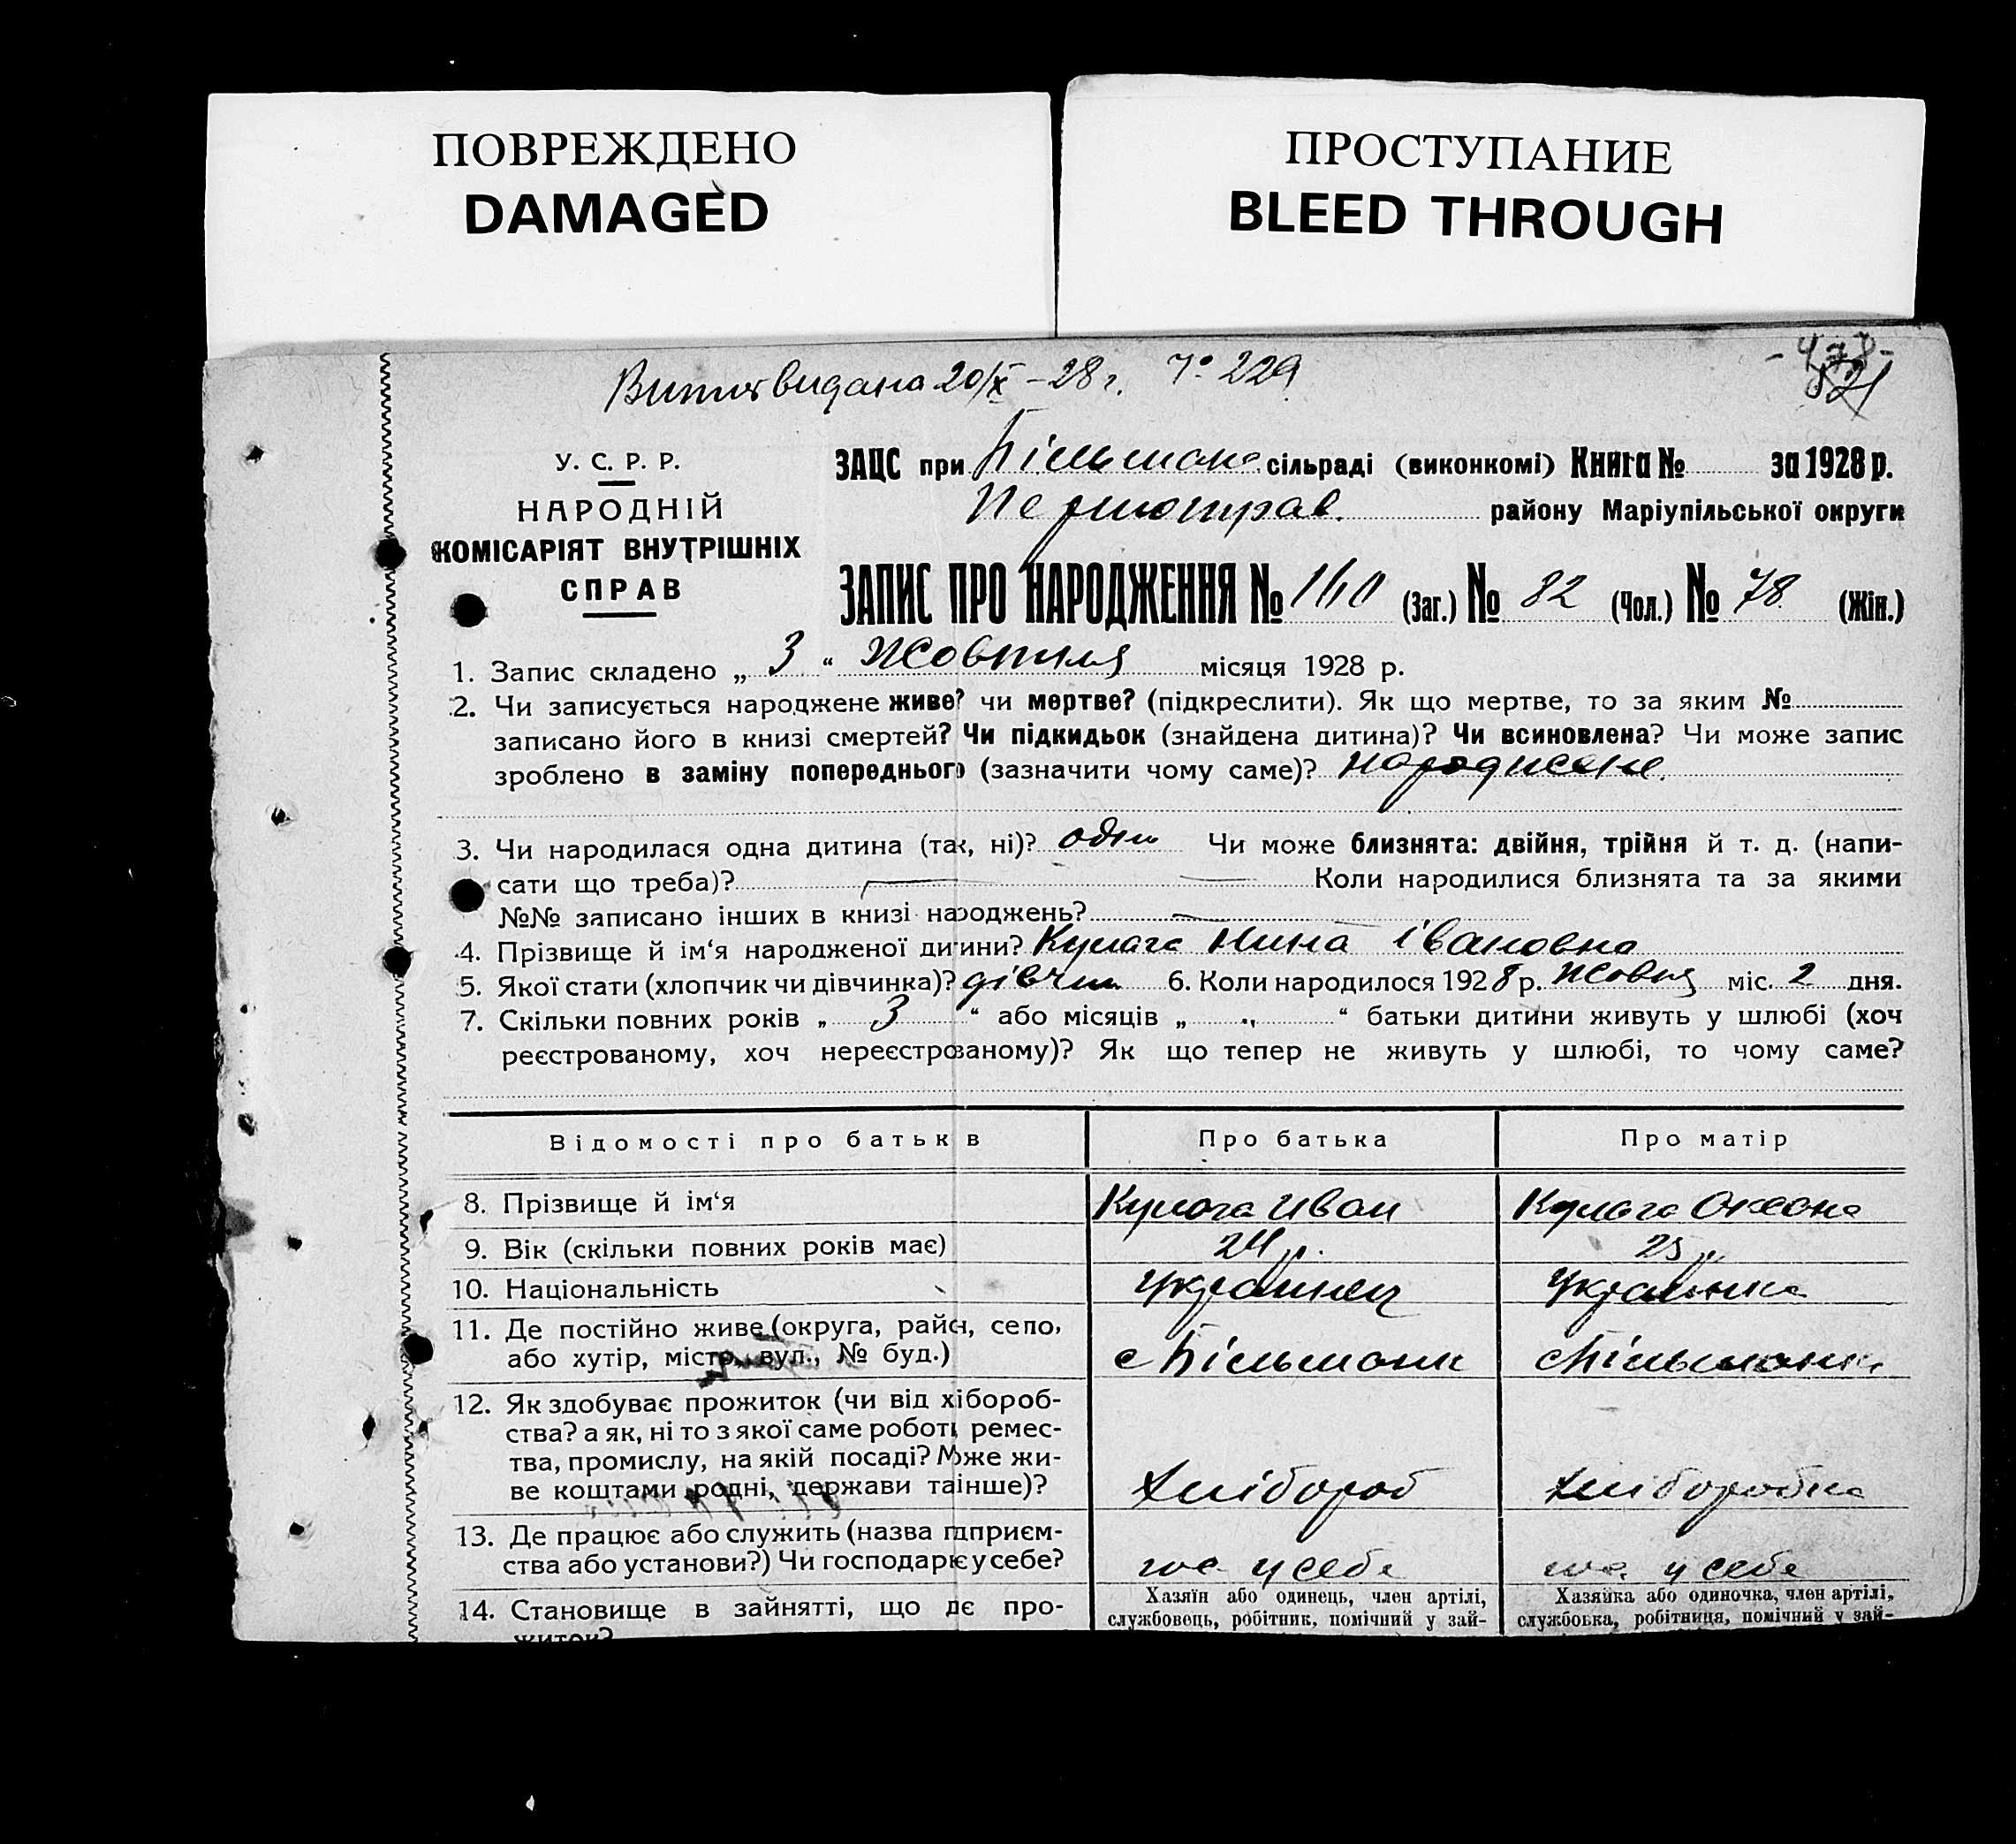 ПОВРЕЖДЕНО
DAMAGED
ПРОСТУПАНИЕ
BLEED THROUGH
видана 20/X – 28 г. № 229
- 478 -
521
У. С. Р. Р.
НАРОДНІЙ
КОМІСАРІЯТ ВНУТРІШНІХ
СПРАВ
ЗАЦС при Більман. сільраді (виконкомі) Книга № за 1928 р.
району Маріупільської округи
ЗАПИС ПРО НАРОДЖЕННЯ № 160 (Заг.) № 82 (Чол.) № 78 (Жін.)
1. Запис складено „ 3 “ Жовтня місяця 1928 р.
2. Чи записується народжене живе? чи мертве? (підкреслити). Як що мертве, то за яким №
записано його в книзі смертей? Чи підкидьок (знайдена дитина)? Чи всиновлена? Чи може запис
зроблено в заміну попереднього (зазначити чому саме)?
3. Чи народилася одна дитина (так, ні)? одна Чи може близнята: двійня, трійня й т. д. (напи-
сати що треба)? Коли народилися близнята та за якими
№№ записано інших в книзі народжень?
4. Прізвище й ім‘я народженої дитини? Кулага Нина Івановна
5. Якої стати (хлопчик чи дівчинка)? дівчин 6. Коли народилося 1928 р. Жовтня міс. 2 дня.
7. Скільки повних років „ 3 “ або місяців „ “ батьки дитини живуть у шлюбі (хоч
реєстрованому, хоч нереєстрованому)? Як що тепер не живуть у шлюбі, то чому саме?
Відомості про батьків
Про батька
Про матір
8. Прізвище й ім‘я
Кулага Иван
Кулага Оксана
9. Вік (скільки повних років має)
24 р.
25 р.
10. Національність
Українец
Українка
11. Де постійно живе (округа, район, село,
або хутір, місто, вул., № буд.)
с Більманк
с Більманк
12. Як здобуває прожиток (чи від хібороб-
ства? а як, ні то з якої саме роботи, ремес-
тва, промислу, на якій посаді? Може жи-
ве коштами родні, держави та інше)?
Хлібороб
Хліборобка
13. Де працює або служить (назва підприєм-
ства або установи?) Чи господарює у себе?
у себе
у себе
14. Становище в зайнятті, що дє про-
житок?
Хазяїн або одинець, член артілі,
службовець, робітник, помічний у зай-
Хазяйка або одиночка, член артілі,
службовка, робітниця, помічний у зай-